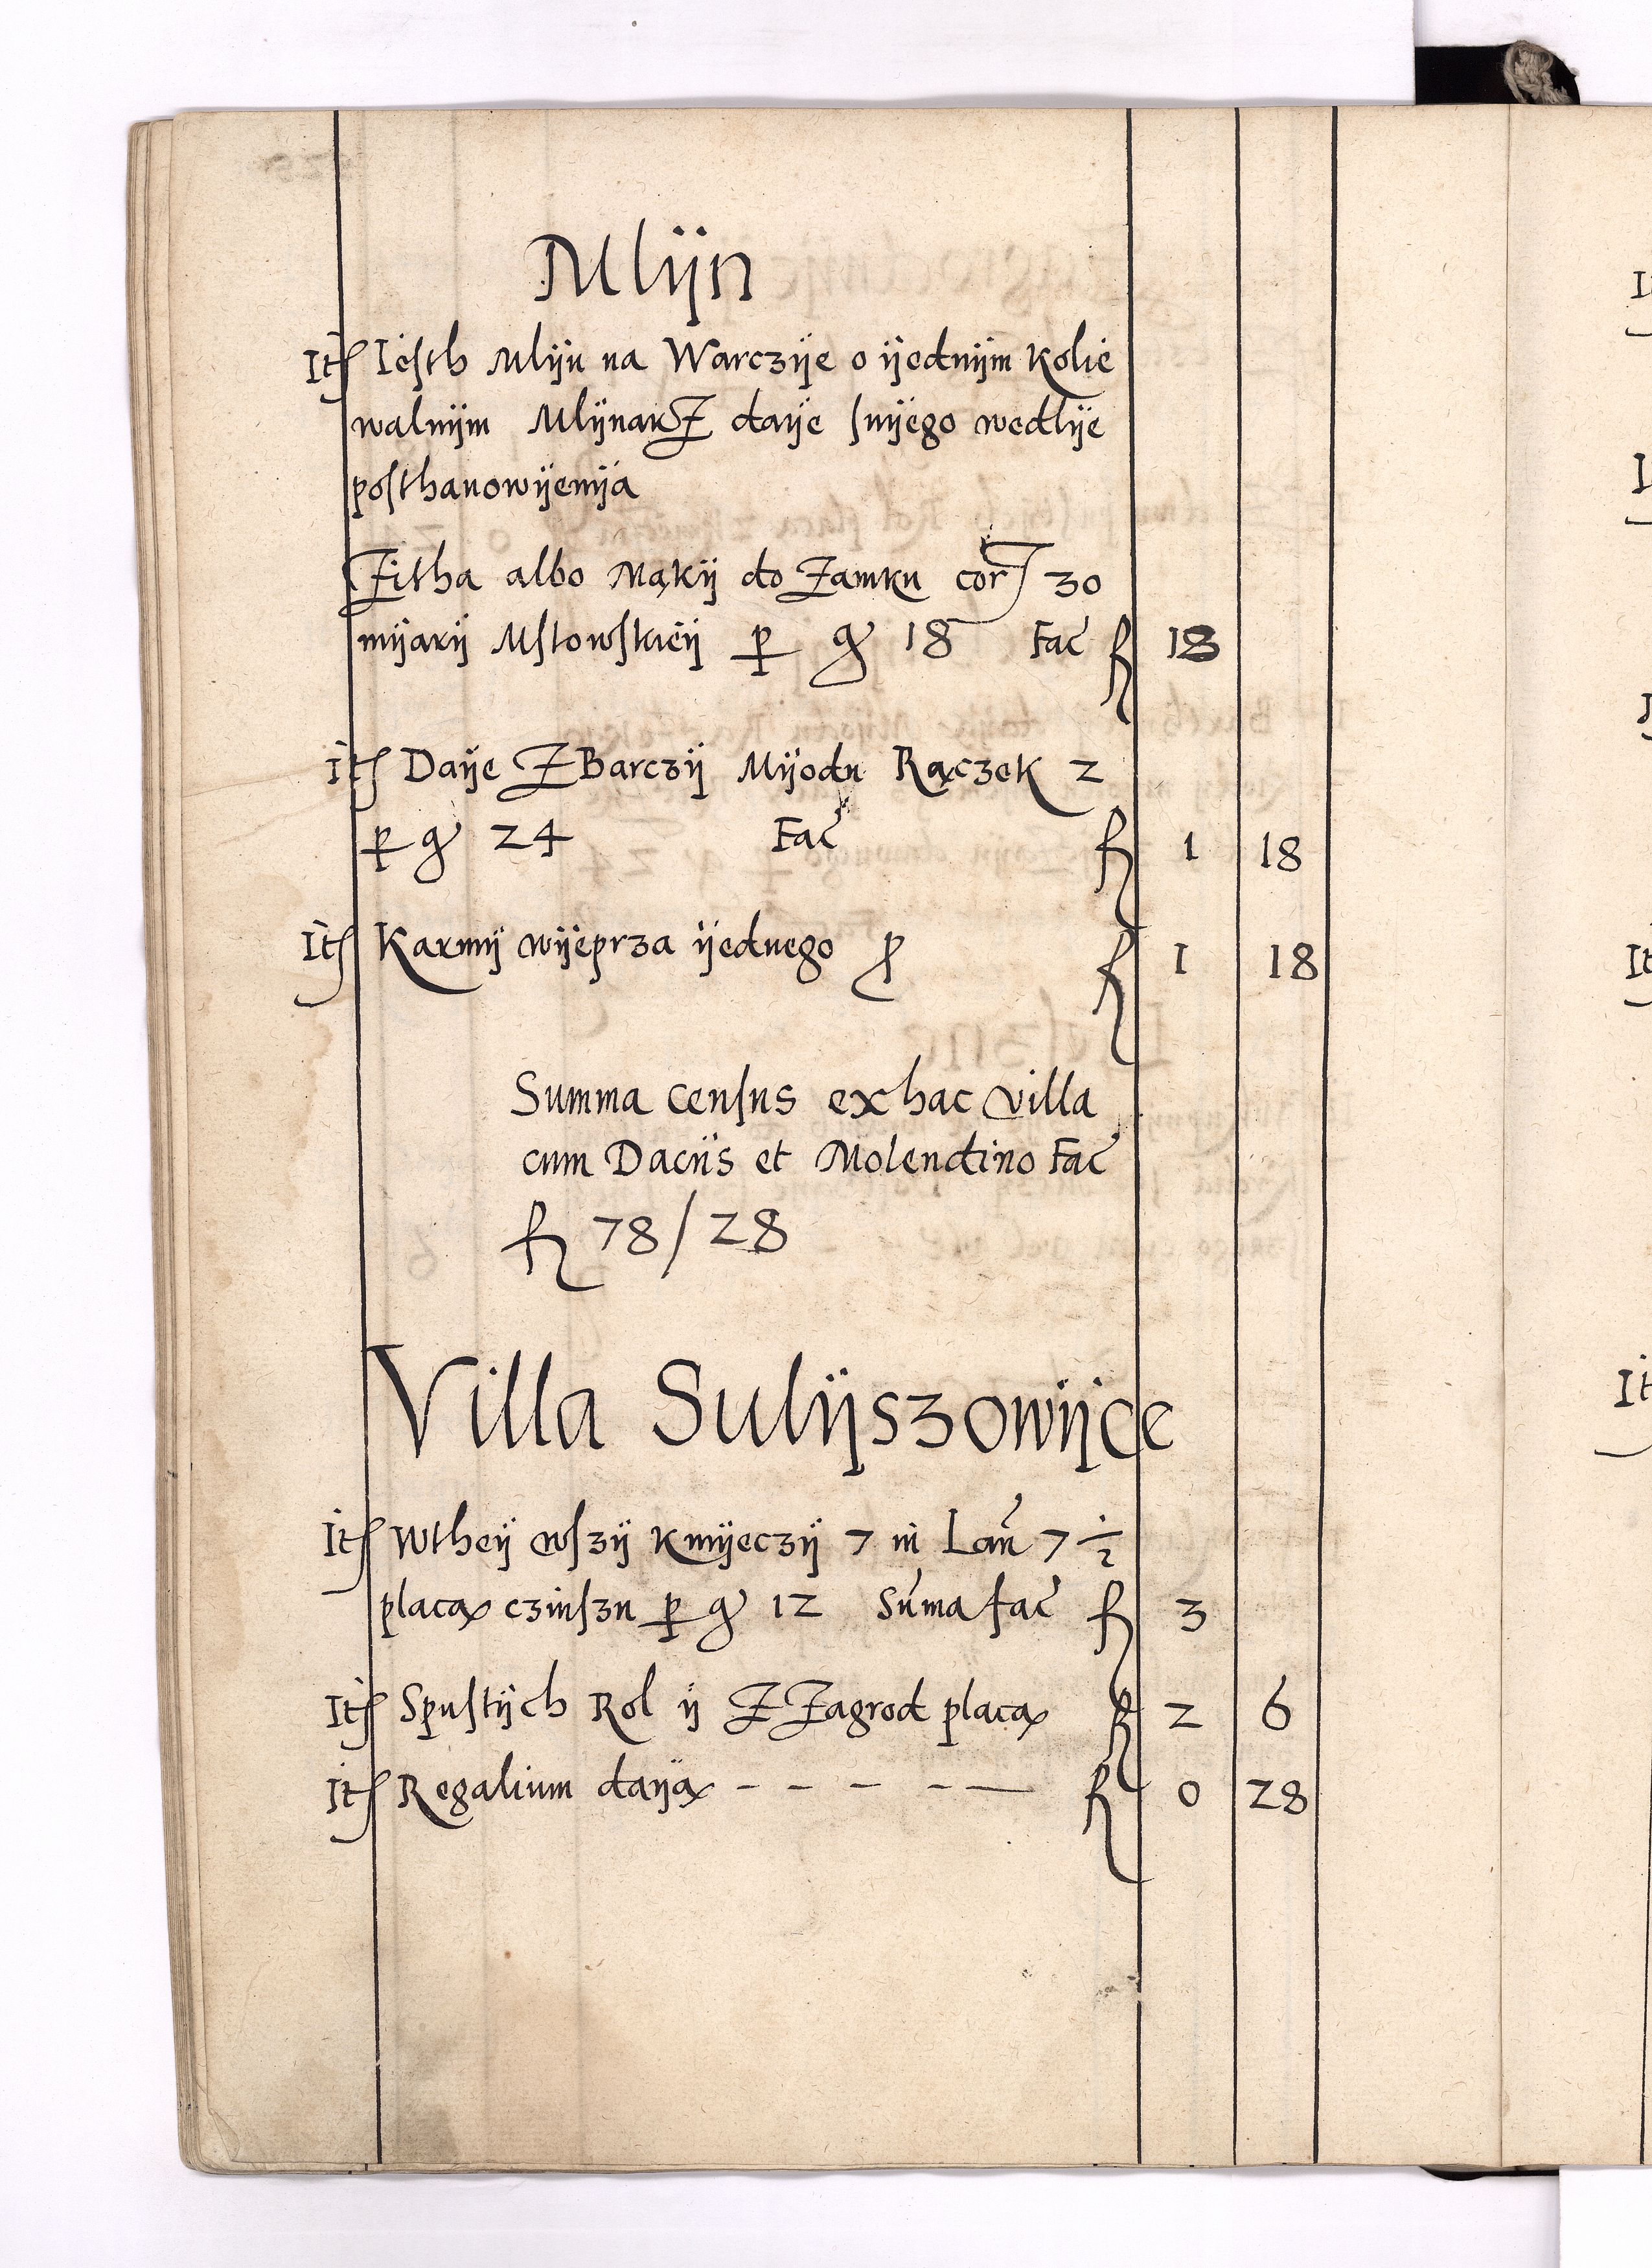 Mlijn
Itꝭ Iesth Mlijn na Warczije o ijednijm Kolie
walnijm MlijnarZ daije snijego wedlije
posthanowijenija
Zitha albo Mąkij do Zamku cor 30
mijarij Mstowskieij ꝑ gr 18 Fac fl 18
itꝭ Daije Z Barczij Mijodu Rączek 2
ꝑ gr 24 Fac fl 1 18
Itꝭ Karmij wijeprza ijednego ꝓ fl 1 18
Summa census ex hac villa
cum Daciis et Molendino Fac
fl 78/28
Villa Sulijszowijce
Itꝭ Wtheij wszij Kmijeczij 7 in Lan 7 ½
placą czinszu ꝑ gr 12 Suma fac fl 3
Itꝭ Spustijch Rol ij Z Zagrod placą fl 2 6
itꝭ Regalium daiją - - - - — fl 0 28